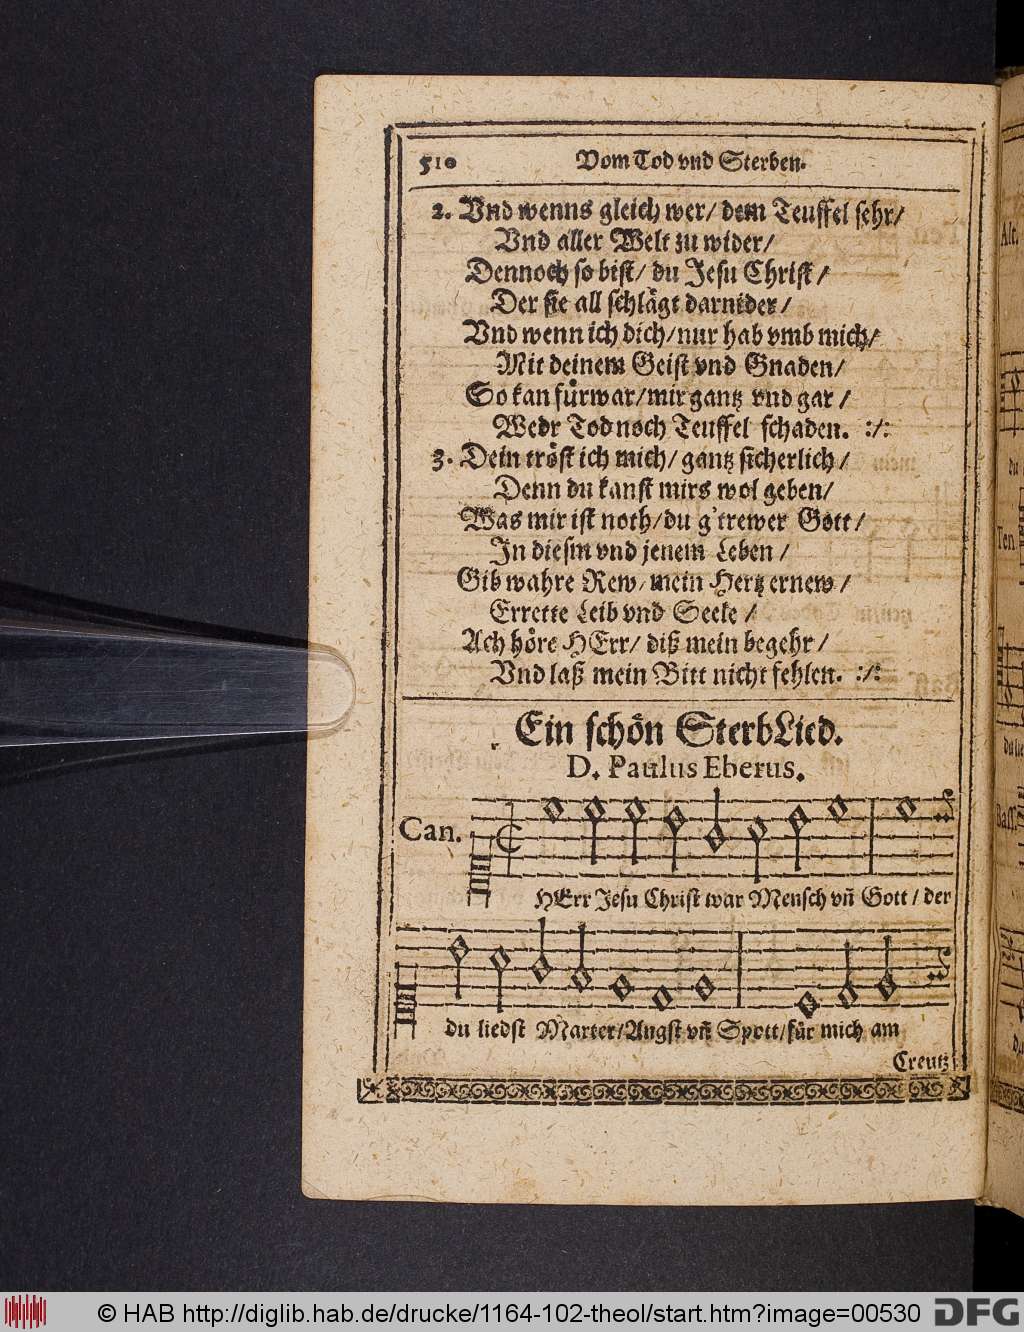 510 Vom Tod vnd Sterben.
2. Vnd wenns gleich wer/ dem Teuffel sehr/
Vnd aller Welt zu wider/
Dennoch so bist/ du Jesu Christ/
Der sie all schlägt darnider/
Vnd wenn ich dich/ nur hab vmb mich/
Mit deinem Geist vnd Gnaden/
So kan fürwar/ mir gantz vnd gar/
Wedr Tod noch Teuffel schaden. :/:
3. Dein tröst ich mich/ gantz sicherlich/
Denn du kanst mirs wol geben/
Was mir ist noth/ du g'trewer Gott/
In diesm vnd jenem Leben/
Gib wahre Rew/ mein Hertz ernew/
Errette Leib vnd Seele/
Ach höre HErr/ diß mein begehr/
Vnd laß mein Bitt nicht fehlen. :/:
Ein schön SterbLied.
D. Paulus Eberus.
Can.
HErr Jesu Christ war Mensch vñ Gott/ der
du liedst Marter/Angst vñ Spott/für mich am
Creutz
Alt.
du
Ten
Bass.
© HAB http://diglib.hab.de/drucke/1164-102-theol/start.htm?image=00530 DFG